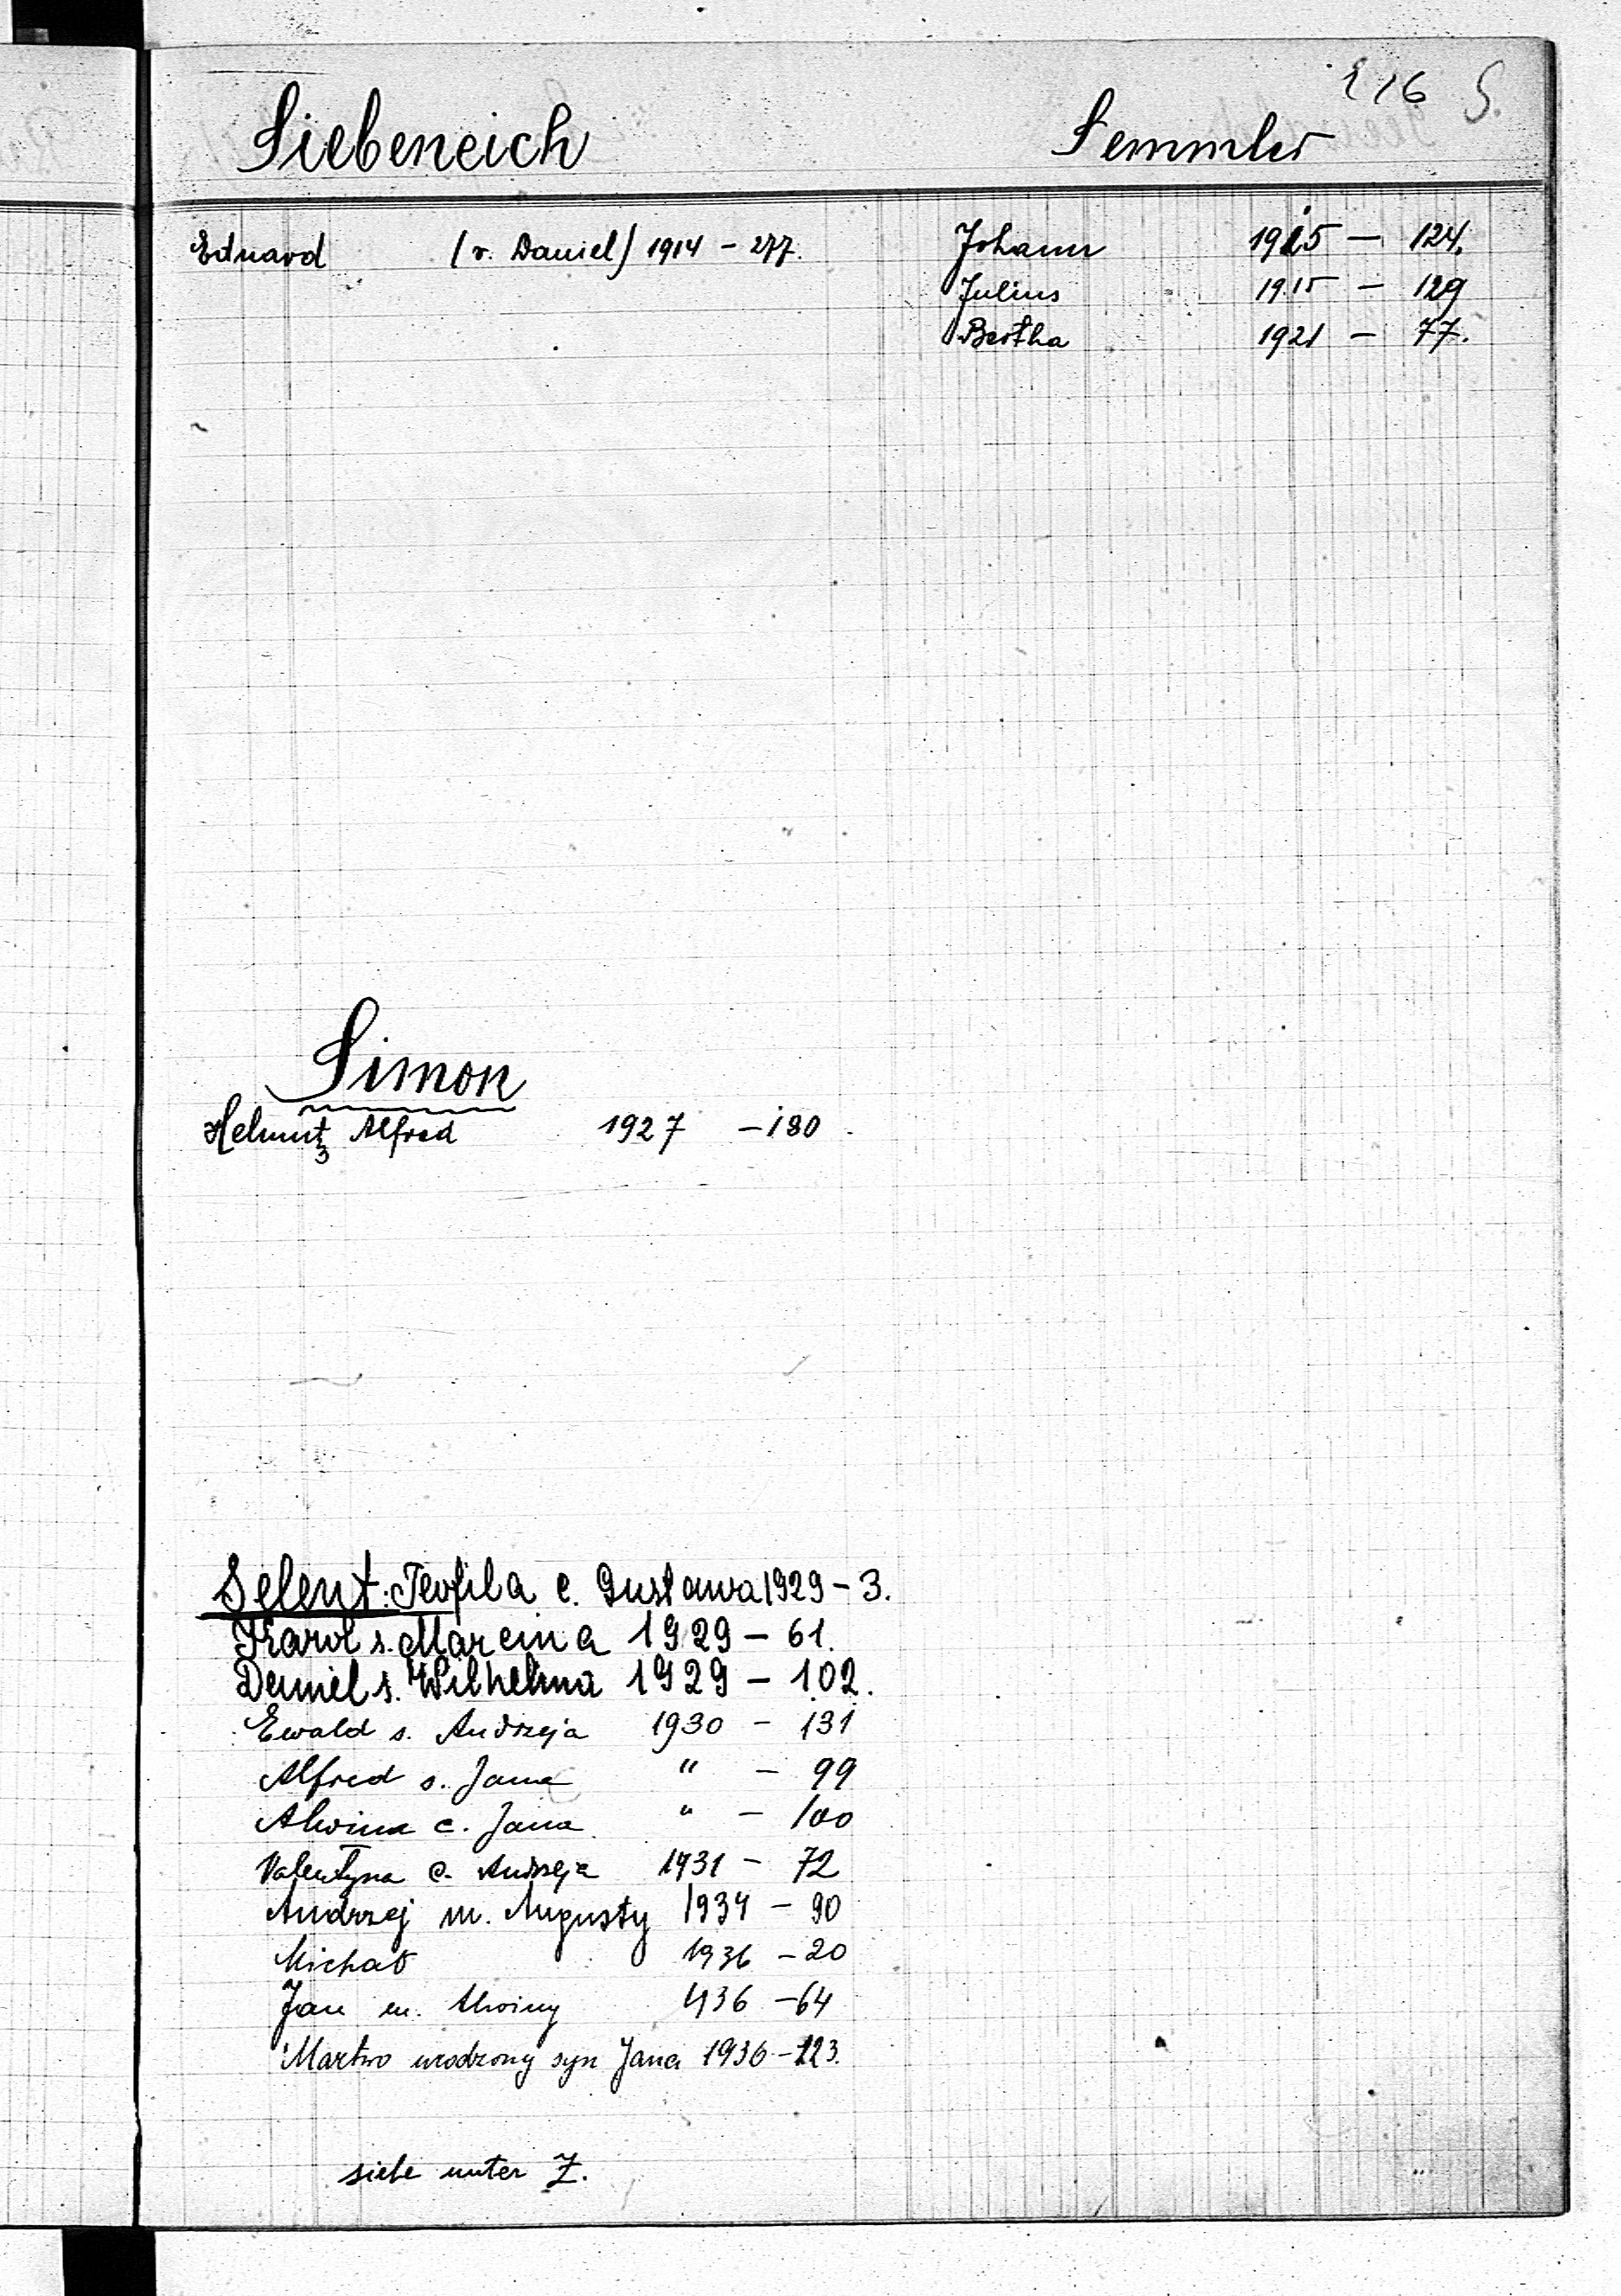 116 S.
Siebeneich
Eduard (v. Daniel) 1914 - 277.
Simon
Helmut Alfred 1927 - 180.
Selent: Teofila c. Gustawa 1929 - 3.
Karol s. Marcina 1929 - 61.
Daniel s. Wilhelma 1929 - 102.
Ewald s. Andrzeja 1930 - 131
Alfred s. Jana " - 99
Alwina c. Jana " - 100
Valentyna c. Andrzeja 1931 - 72
Andrzej m. Augusty 1934 - 90
Michał 1936 - 20
Jan m. Alwiny 1936 - 64
Martwo urodzony syn Jana 1936 - 123.
siehe unter Z.
Semmler
Johann 1915 - 124.
Julius 1915 - 129
Bertha 1921 - 77.